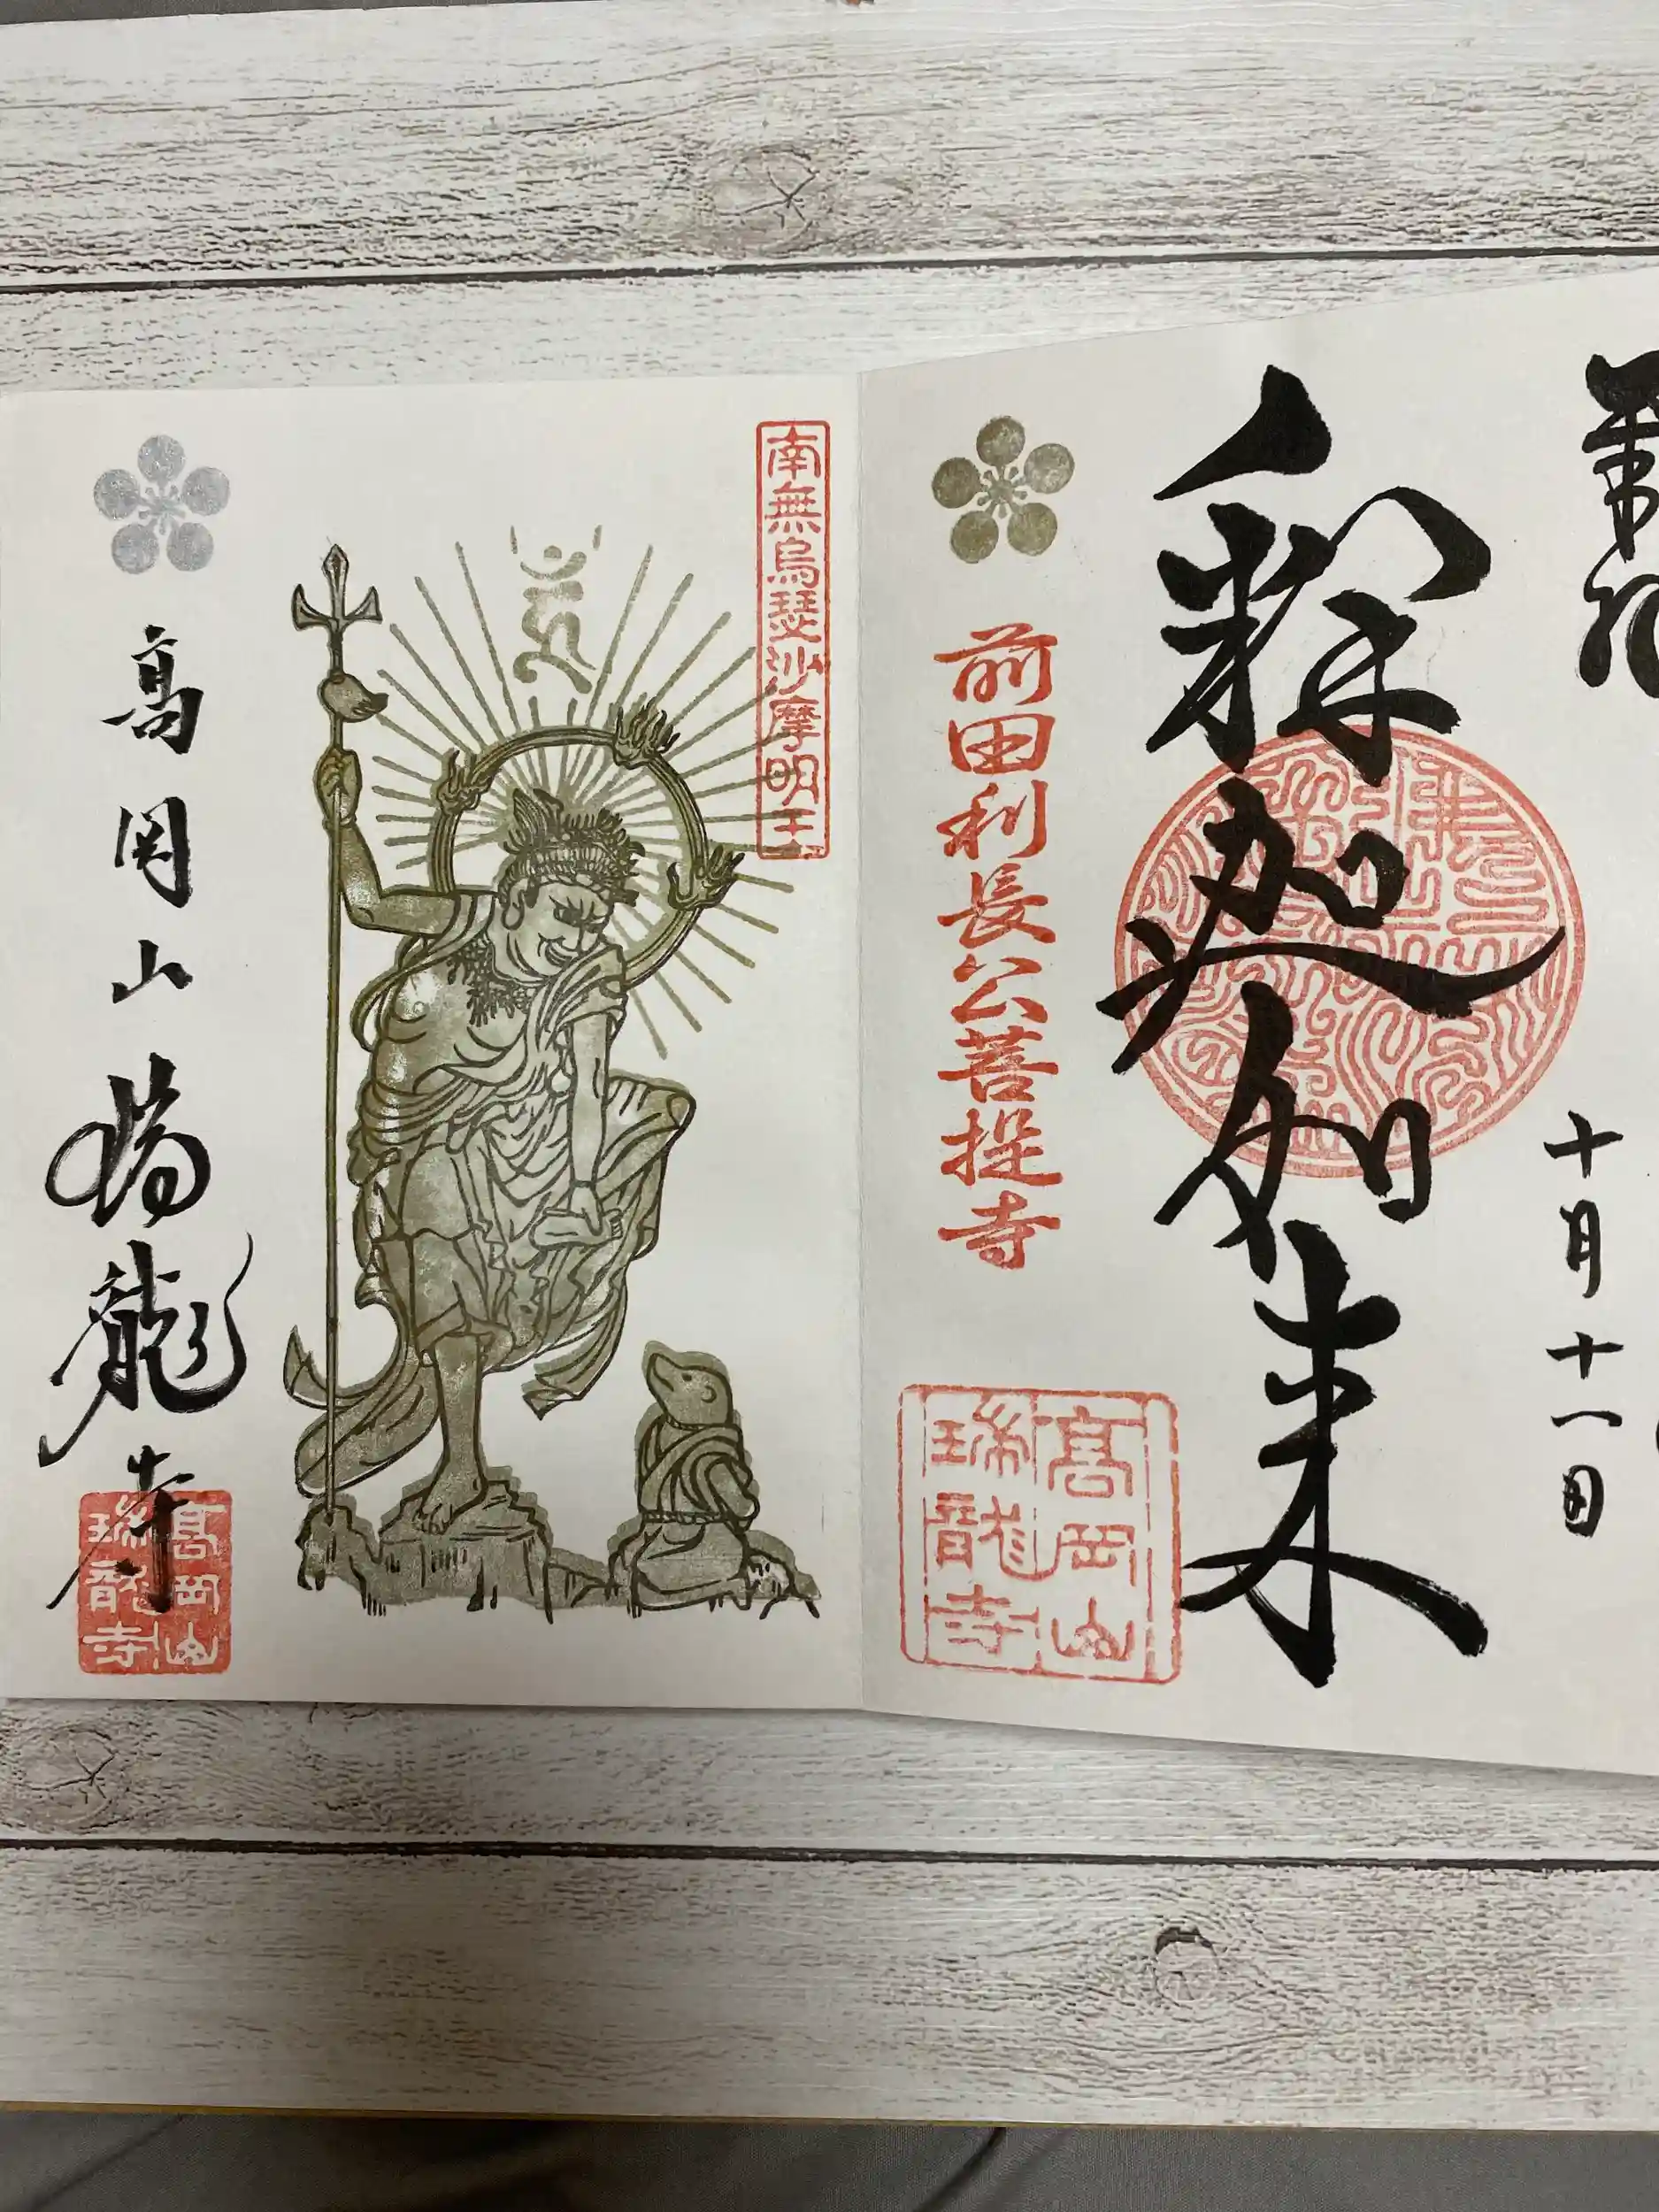 十月十一日
釈迦如来
前田利長公菩提寺
高岡山
瑞龍寺
南無烏瑟沙摩明王
高岡山瑞龍寺
高岡山
瑞龍寺